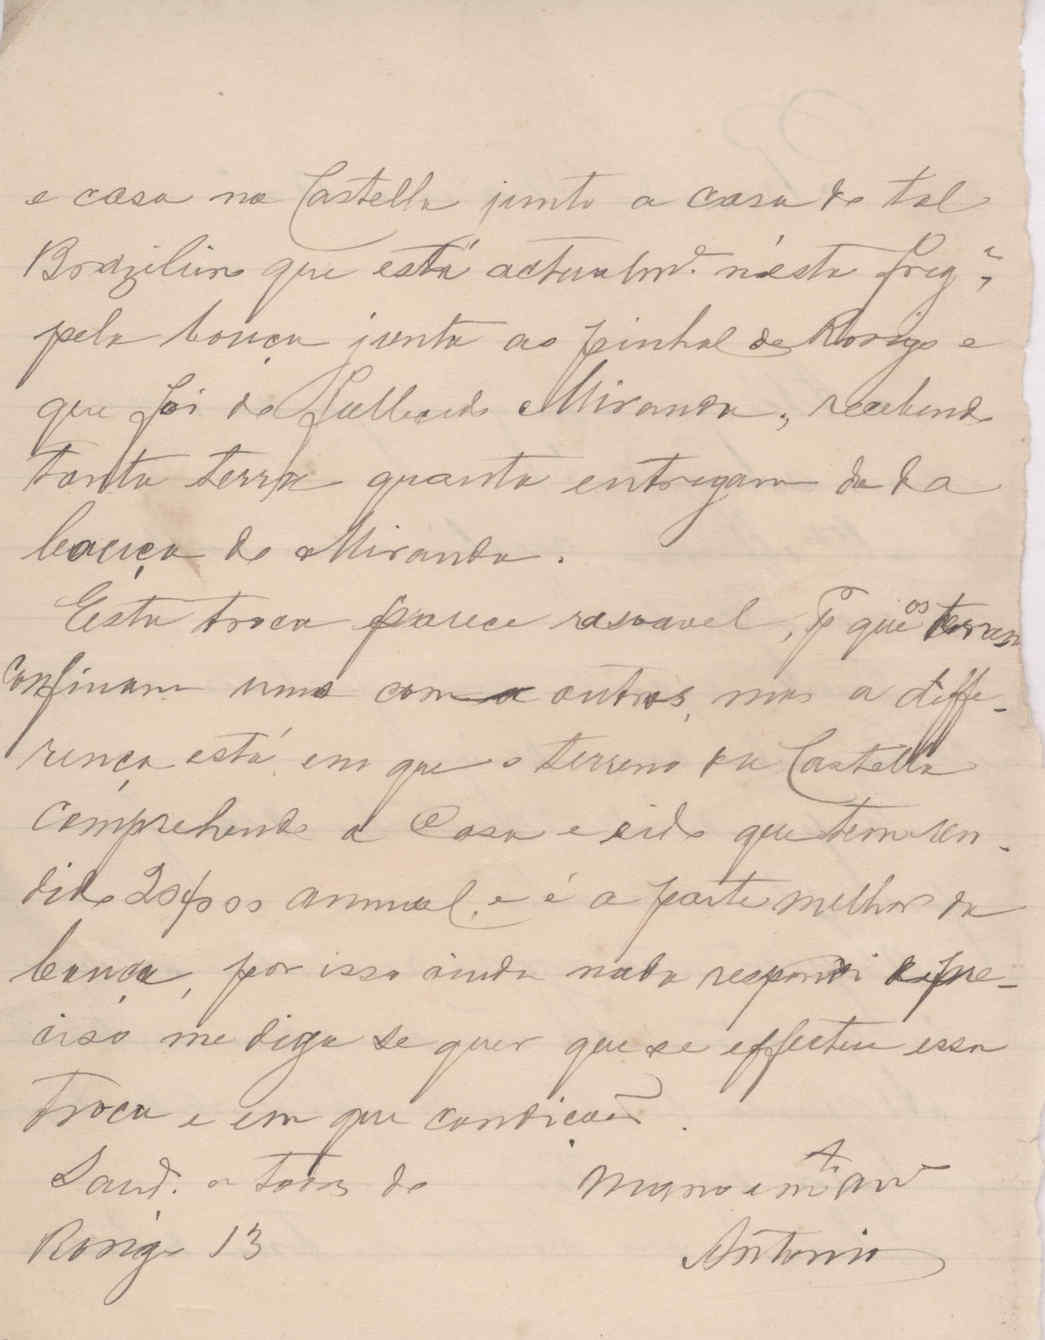 e casa na Castella junto a casa do tal
Braziliro que está actualmᵉ. nésta freg.ª,
pela bouça junta ao pinhal de Rorigo e
que foi do fallecido Miranda, recebendo
tanta terra quanta entregam da da
bouça do Miranda.
Esta troca parece rasoavel, p. que os terrenos
confinam uns com os outros, mas a diffe-
rença está em que o terreno da Castella
comprehende a Casa e eido que tem ren-
dido 20$000 annual, e é a parte melhor da
bouça, por isso ainda nada respondi e é pre-
ciso me diga se quer que se effectue essa
troca e em que condicoẽs.
Saud. a todos do Mano e m.to am.º
Rorigo 13 Antonio